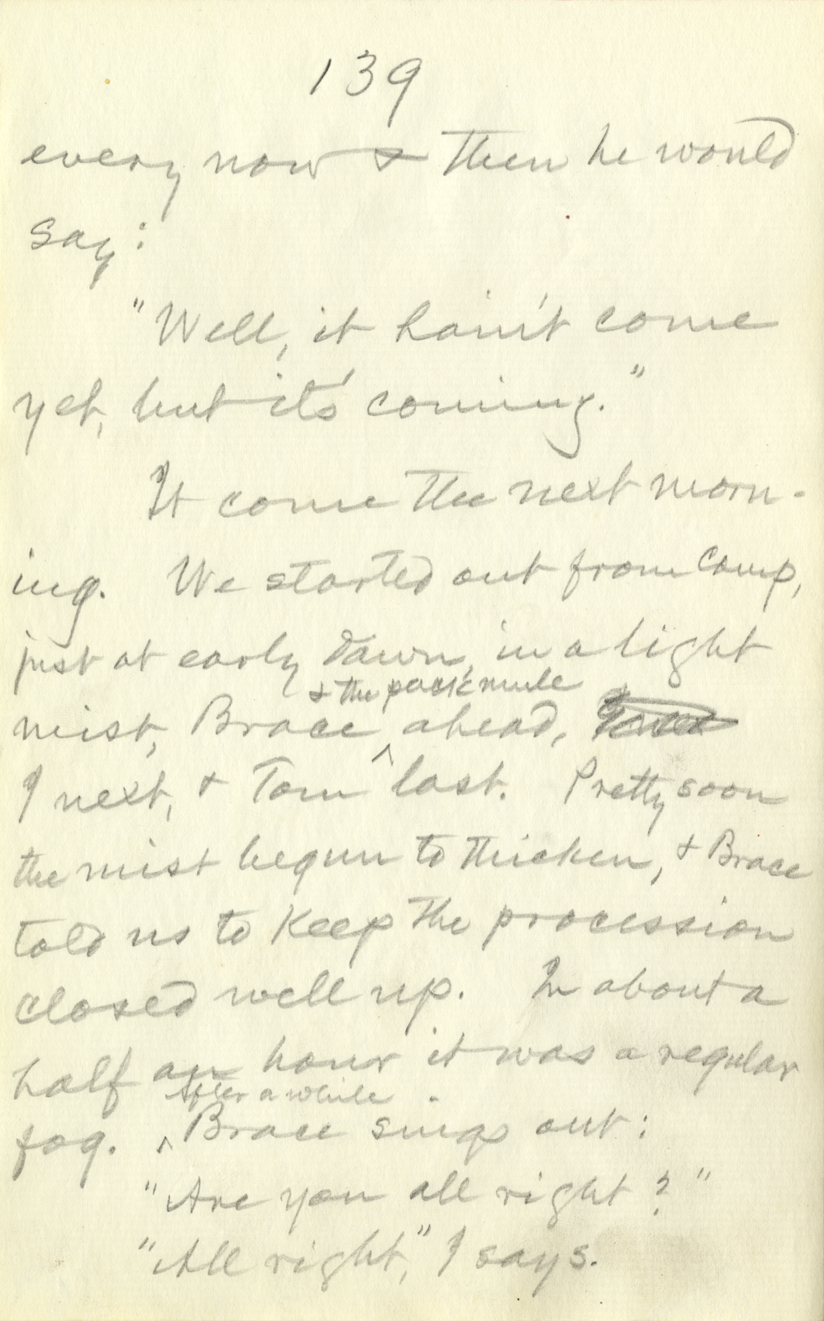 139
every now & then he would
say:
"Well, it hain't come
yet, but it's coming."
It come the next morn-
ing. We started out from camp,
just at early dawn, in a light
& the pack mule
mist, Brace ^ ahead,
I next, & Tom last. Pretty soon
the mist begun to thicken, & Brace
told us to keep the procession
closed well up. In about a
half an hour it was a regular
After a while
fog. ^ Brace sings out:
"Are you all right?"
"All right," I says.